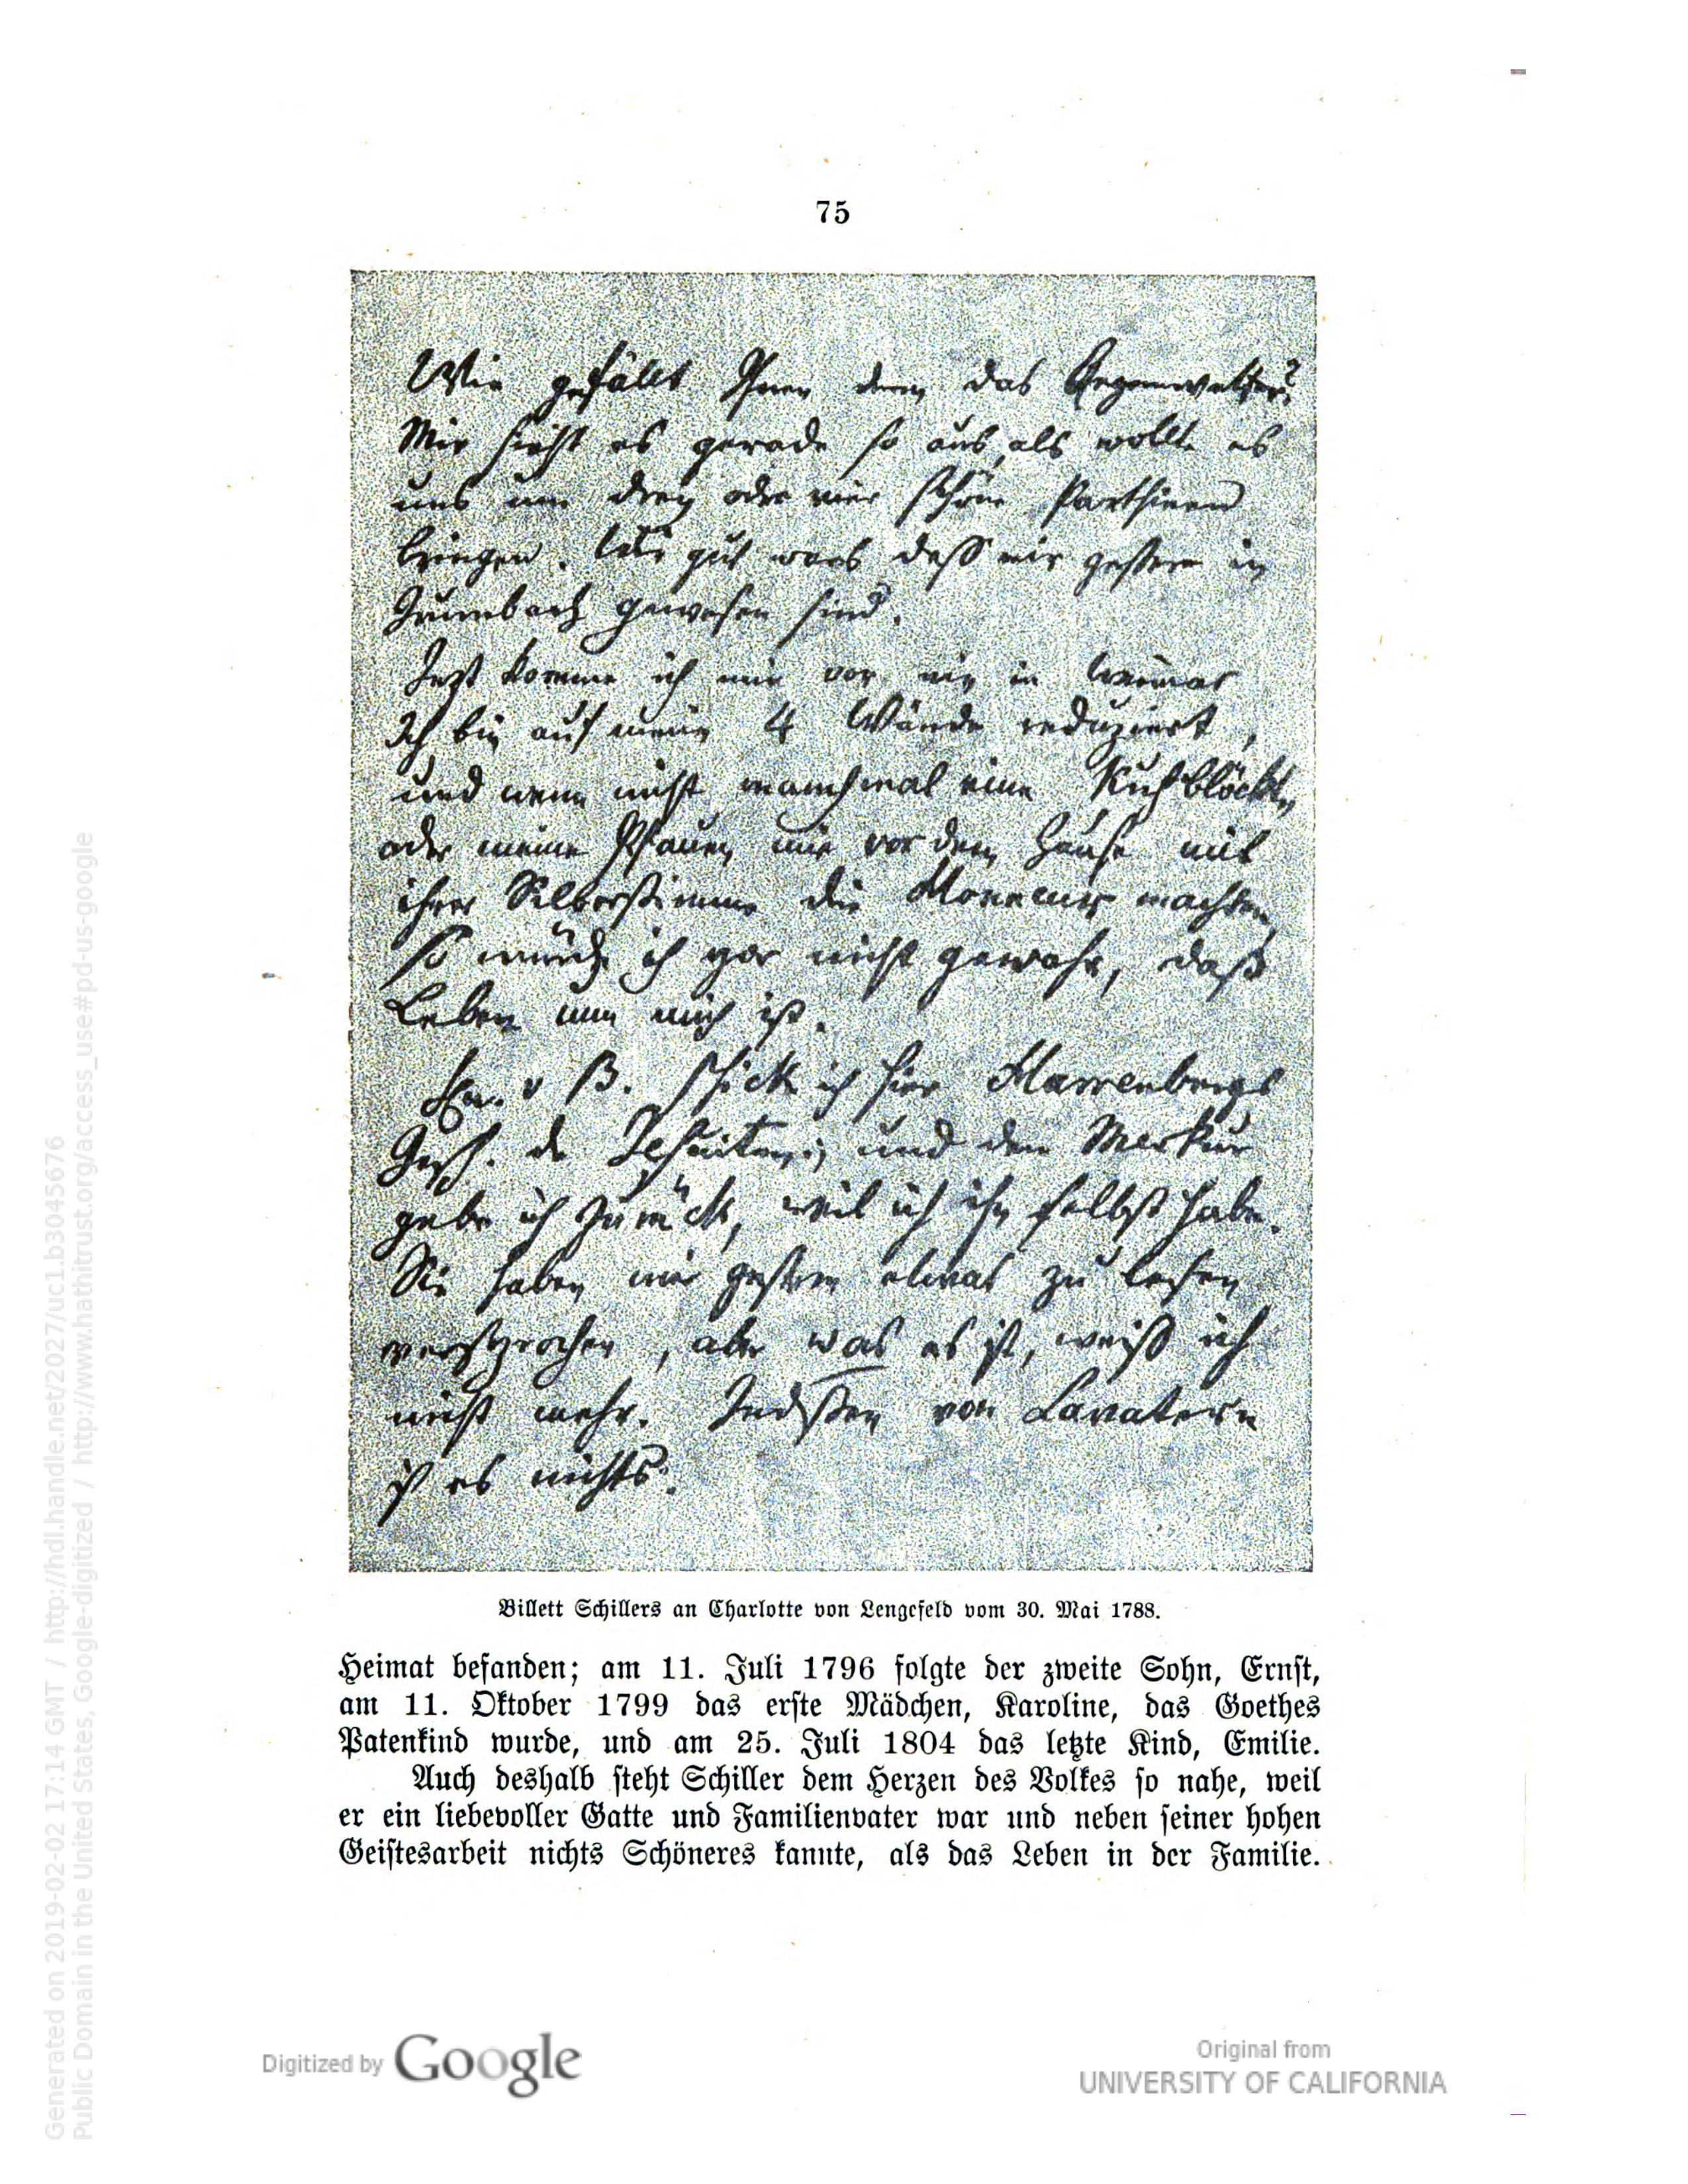 75
Wie gefällt Ihnen denn das Regenwetter?
Mir sieht es gerade so aus, als wollte es
uns um drey oder vier schöne Parthieen
bringen. Wie gut wars daß wir gestern in
Cumbach gewesen sind.
Jezt komme ich mir vor wie in Weimar
Ich bin auf meine 4 Wände reduziert,
und wenn nicht manchmal eine Kuh blöckte,
oder meine Pfauen mir vor dem Hause mit
ihrer Silberstimme die Honneurs machten
so würde ich gar nicht gewahr, daß
Leben um mich ist.
Fr. v B. schicke ich hier Harrenbergs
Gesch. der Jesuiten; und den Merkur
gebe ich zurück, weil ich ihn selbst habe.
Sie haben mir gestern etwas zu lesen
versprochen, aber was es ist, weiß ich
nicht mehr. Indessen von Lavatern
ist es nichts.
Billett Schillers an Charlotte von Lengefeld vom 30. Mai 1788.
Heimat befanden; am 11. Juli 1796 folgte der zweite Sohn, Ernst,
am 11. Oktober 1799 das erste Mädchen, Karoline, das Goethes
Patenkind wurde, und am 25. Juli 1804 das letzte Kind, Emilie.
Auch deshalb steht Schiller dem Herzen des Volkes so nahe, weil
er ein liebevoller Gatte und Familienvater war und neben seiner hohen
Geistesarbeit nichts Schöneres kannte, als das Leben in der Familie.
Generated on 2019-02-02 17:14 GMT / http://hdl.handle.net/2027/uc1.b3045676
Public Domain in the United States, Google-digitized / http://www.hathitrust.org/access_use#pd-us-google
Digitized by Google
Original from
UNIVERSITY OF CALIFORNIA